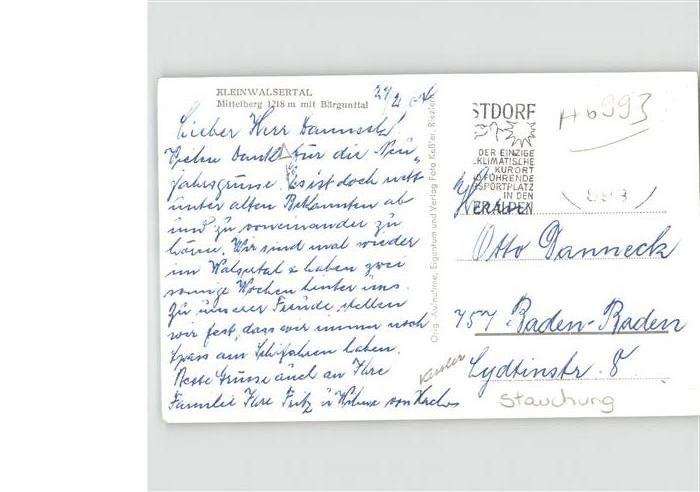 KLEINWALSERTAL
Mittelberg 1218 m mit Bärgunttal
Lieber Herr Danneck!
Vielen Dank für die Neu
jahrsgrüsse. Es ist doch nett
unter alten Bekannten ab
und zu voneinander zu
hören. Wir sind mal wieder
im Walsertal & haben zwei
sonnige Wochen hinter uns.
Zu unserer Freude stellen
wir fest, dass wir immer noch
Spass am Skifahren haben.
Beste Grüsse auch an Ihre
Familie Ihre Fritz u. von
Orig. Aufnahme, Eigentum und Verlag Foto Keßler, Riezlern
STDORF
DER EINZIGE
KLIMATISCHE
KURORT
FÜHRENDE
SPORTPLATZ
IN DEN
ERALPEN
H 6993
Otto Danneck
757 Baden-Baden
Lydtinstr. 8
Kessler
Stauchung